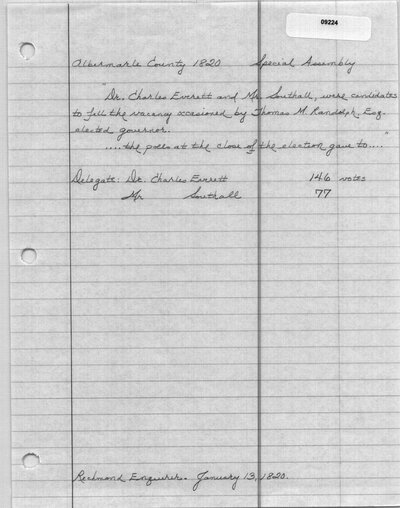 09224
Albermarle County 1820 Special Assembly
"Dr. Charles Everett and Mr. Southall, were candidates
to fill the vacancy occasioned by Thomas M. Randolph, Esq.
elected governor.
....the polls at the close of the election gave to...."
Delegate: Dr. Charles Everett 146 votes
Mr Southall 77
Richmond Enquirer. January 13, 1820.